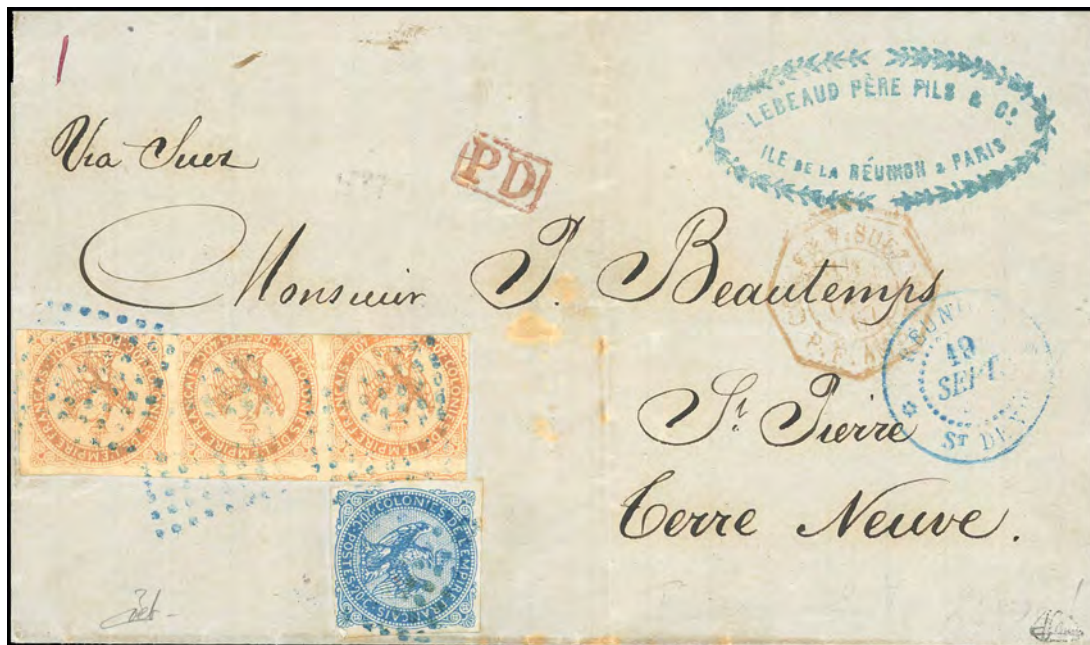 LEBEAUD PÈRE FILS & Cⁱᵉ
ILE DE LA RÉUNION & PARIS
Via Suez
PD
Monsieur J. Beautemps
V. SUEZ
RÉUNI
19
SEPT
Sᵀ DE
Sᵗ Pierre
Terre Neuve.
COLONIES DE L'EMPIRE FRANÇAIS · POSTES · 40C ·
COLONIES DE L'EMPIRE FRANÇAIS · POSTES · 40C ·
COLONIES DE L'EMPIRE FRANÇAIS · POSTES · 40C ·
COLONIES DE L'EMPIRE FRANÇAIS · POSTES · 20C ·